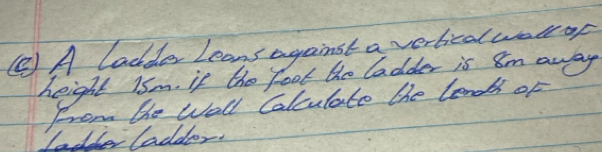 (c) A ladder leans against a vertical wall of
height 15m. if the foot the ladder is 8m away
from the wall Calculate the length of
ladder ladder.